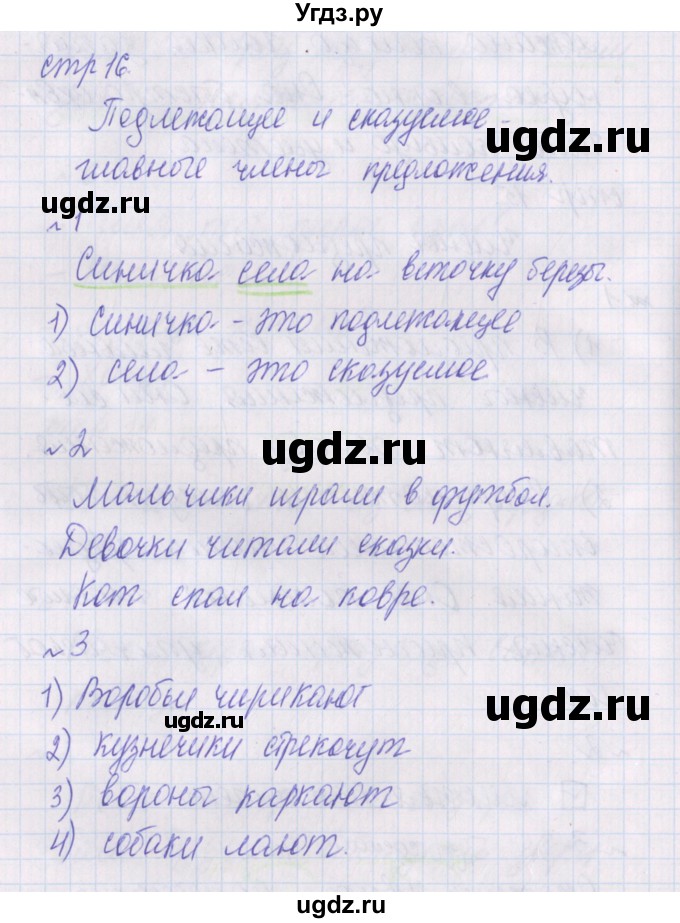 Угдз.ру
стр 16.
Подлежащее и сказуемое -
главные члены предложения.
ugdz.ru ugdz.ru
№1
Синичка села на веточку березы.
1) Синичка - это подлежащее
2) села - это сказуемое
ugdz.ru
№2
Мальчики играли в футбол.
Девочки читали сказки.
Кот спал на ковре.
№3
1) Воробьи чирикают
ugdz.ru ugdz.ru
2) кузнечики стрекочут
3) вороны каркают
4) собаки лают.
ugdz.ru